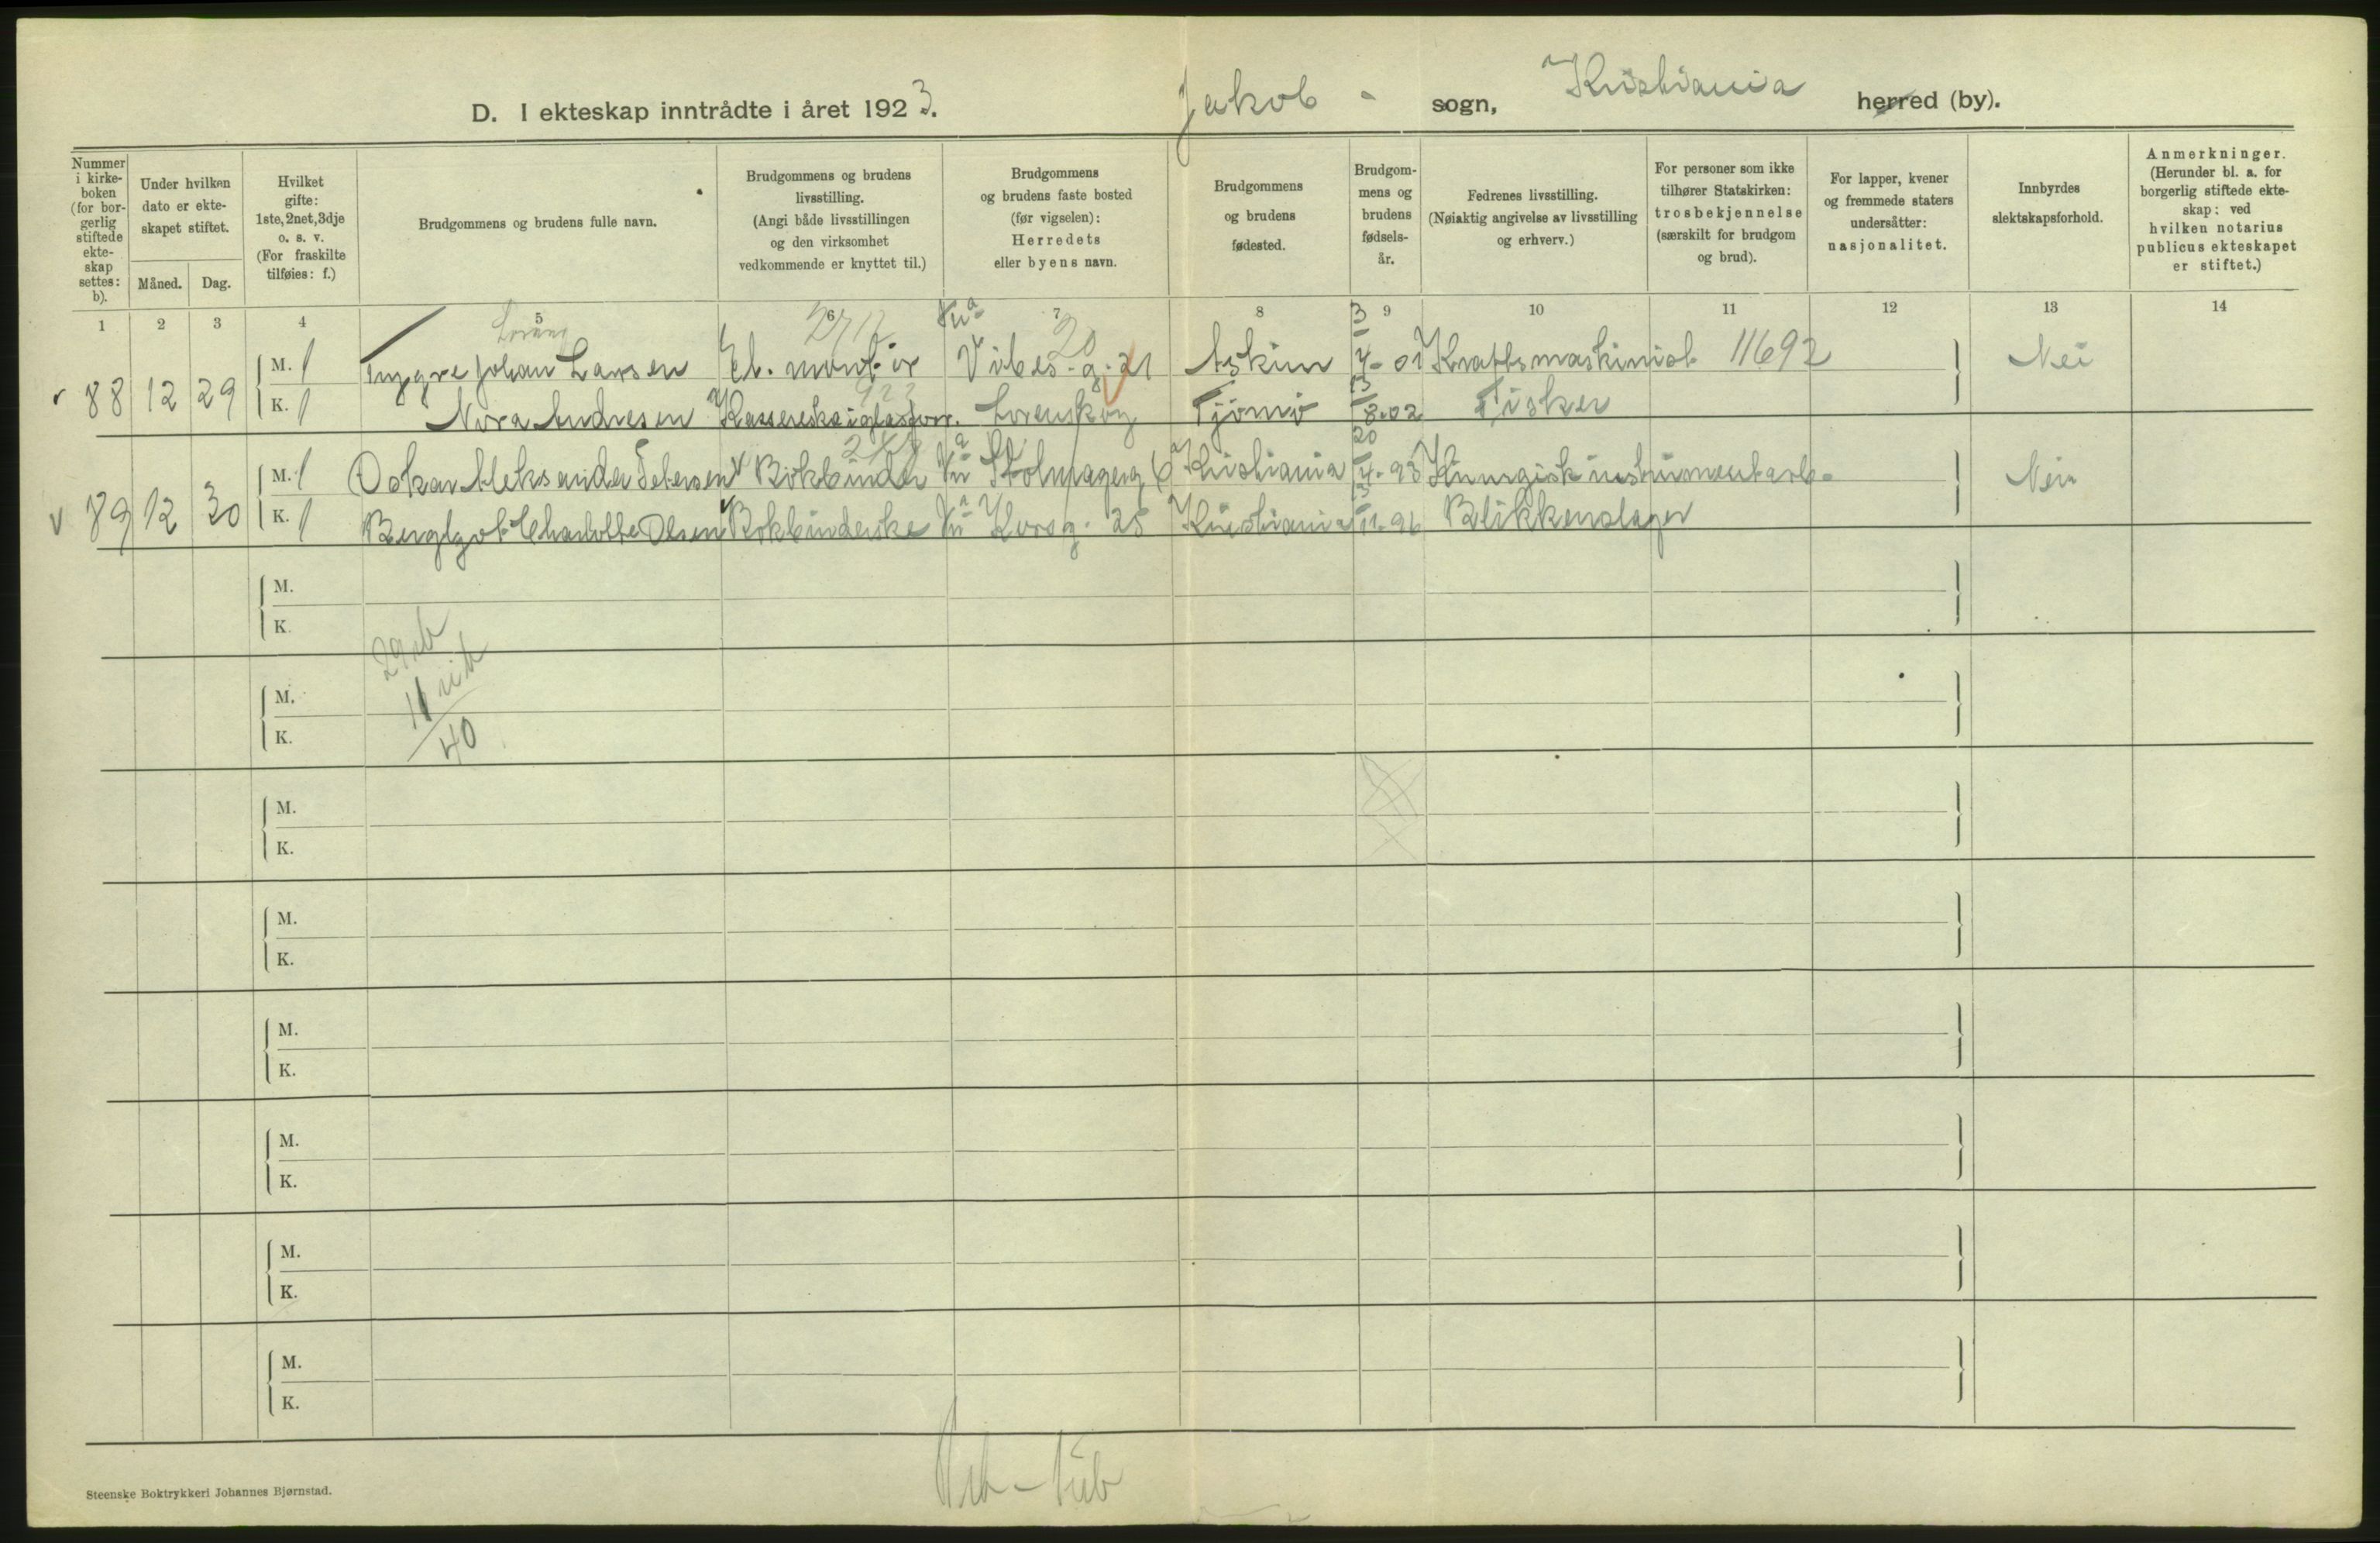 D. I ekteskap inntrådte i året 1923. Jakob - sogn, Kristiania herred (by).
Nummer i kirkeboken (for borgerlig stiftede ekteskap settes: b).
Under hvilken dato er ekteskapet stiftet.
Måned. Dag.
Hvilket gifte: 1ste, 2net, 3dje o. s. v. (For fraskilte tilføies: f.)
Brudgommens og brudens fulle navn.
Brudgommens og brudens livsstilling. (Angi både livsstillingen og den virksomhet vedkommende er knyttet til.)
Brudgommens og brudens faste bosted (før vigselen): Herredets eller byens navn.
Brudgommens og brudens fødested.
Brudgommens og brudens fødselsår.
Fedrenes livsstilling. (Nøiaktig angivelse av livsstilling og erhverv.)
For personer som ikke tilhører Statskirken: trosbekjennelse (særskilt for brudgom og brud).
For lapper, kvener og fremmede staters undersåtter: nasjonalitet.
Innbyrdes slektskapsforhold.
Anmerkninger. (Herunder bl. a. for borgerlig stiftede ekteskap: ved hvilken notarius publicus ekteskapet er stiftet.)
1 2 3 4 5 6 7 8 9 10 11 12 13 14
88 12 29 M. 1 Tryggve Johan Larsen El. montør Kra Vibes-g. 21 Askim 3/4-01 Kraftsmaskinist 11692 Nei
K. 1 Nora Andresen Kassererske i glasforr. Lorenskog Tjømø 13/8-02 Fisker
89 12 30 M. 1 Oskar Aleksander Petersen Bokbinder Kra Stolmagerg 6 Kristiania 20/4-93 Kirurgisk instrumentarb. Nei
K. 1 Bergljot Charlotte Olsen Bokbinderske Kra Korsg. 25 Kristiania 11-96 Blikkenslager
M.
K.
29
11
40
M.
K.
M.
K.
M.
K.
M.
K.
M.
K.
M.
K.
M.
K.
Steenske Boktrykkeri Johannes Bjørnstad.